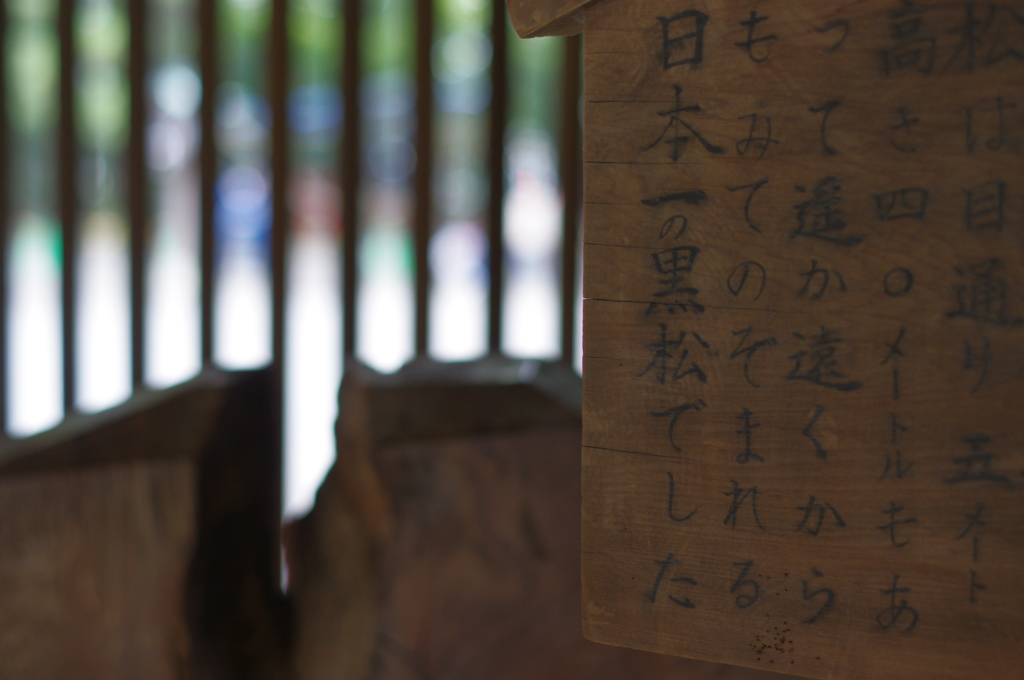 松は目通り五メート
高さ四〇メートルもあ
って遥か遠くから
もみてのぞまれる
日本一の黒松でした